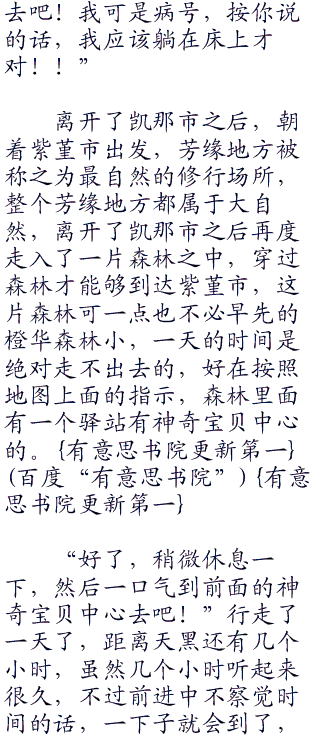 去吧！我可是病号，按你说
的话，我应该躺在床上才
对！！”
离开了凯那市之后，朝
着紫堇市出发，芳缘地方被
称之为最自然的修行场所，
整个芳缘地方都属于大自
然，离开了凯那市之后再度
走入了一片森林之中，穿过
森林才能够到达紫堇市，这
片森林可一点也不必早先的
橙华森林小，一天的时间是
绝对走不出去的，好在按照
地图上面的指示，森林里面
有一个驿站有神奇宝贝中心
的。{有意思书院更新第一}
(百度“有意思书院”) {有意
思书院更新第一}
“好了，稍微休息一
下，然后一口气到前面的神
奇宝贝中心去吧！”行走了
一天了，距离天黑还有几个
小时，虽然几个小时听起来
很久，不过前进中不察觉时
间的话，一下子就会到了，